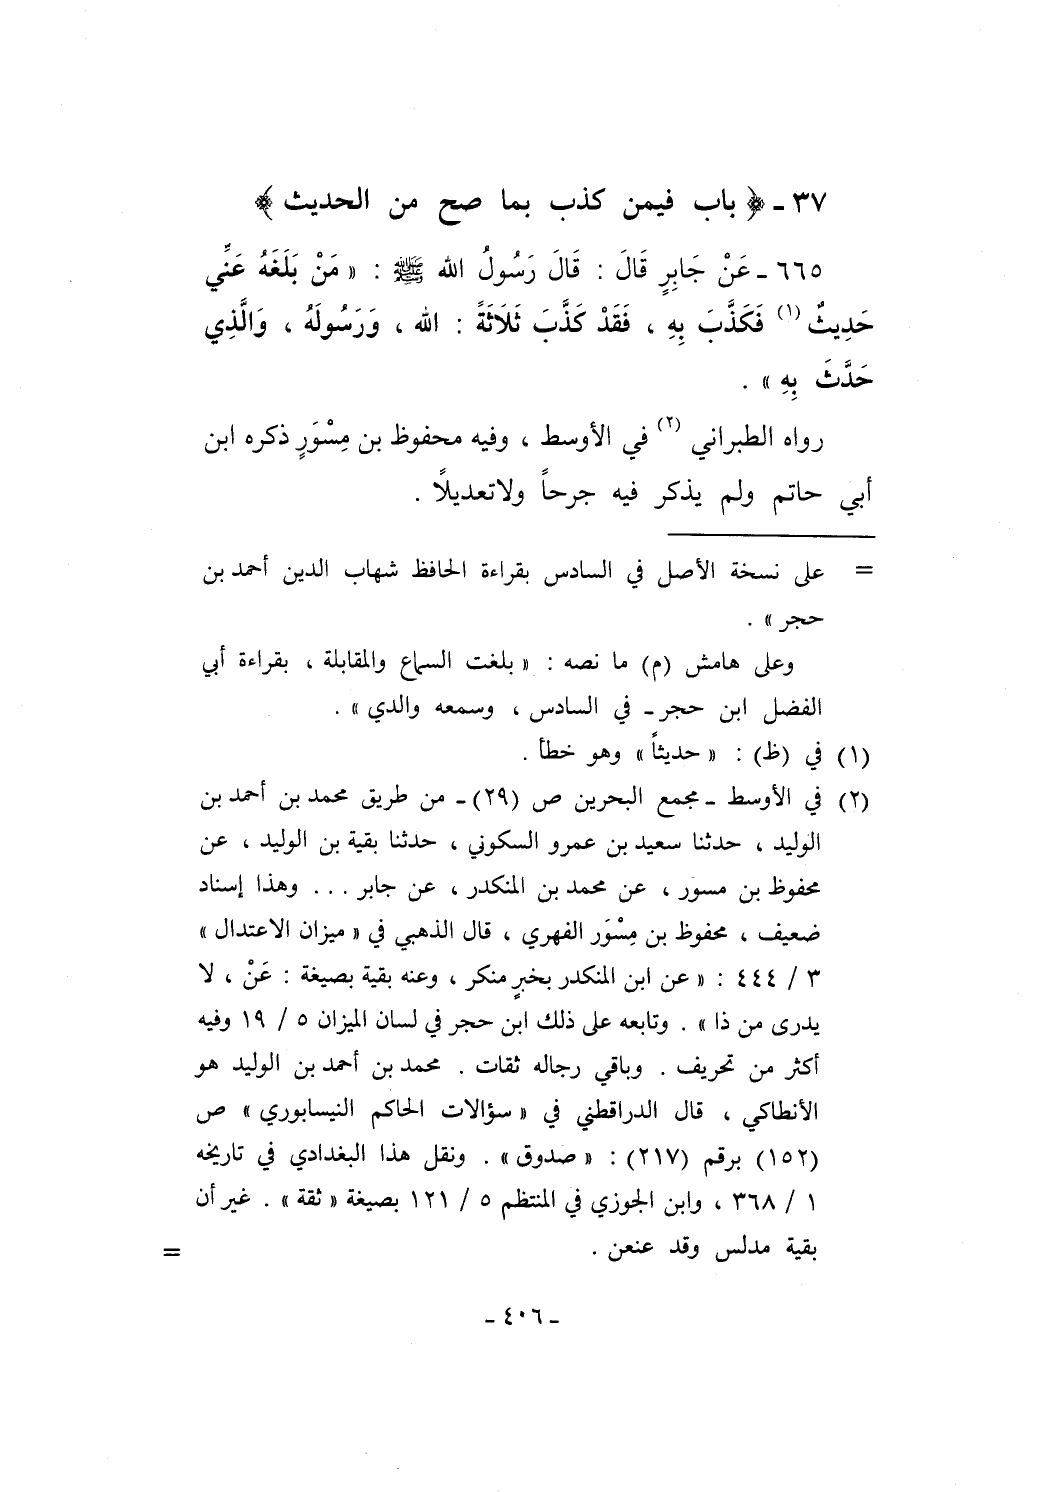 ٣٧ - ﴿ باب فيمن كذب بما صح من الحديث ﴾
٦٦٥ - عَنْ جَابِرٍ قَالَ : قَالَ رَسُولُ الله ﷺ : « مَنْ بَلَغَهُ عَنِّي
حَدِيثٌ (١) فَكَذَّبَ بِهِ ، فَقَدْ كَذَّبَ ثَلَاثَةً : الله ، وَرَسُولَهُ ، وَالَّذِي
حَدَّثَ بِهِ » .
رواه الطبراني (٢) في الأوسط ، وفيه محفوظ بن مِسْوَرٍ ذكره ابن
أبي حاتم ولم يذكر فيه جرحاً ولاتعديلاً .
= على نسخة الأصل في السادس بقراءة الحافظ شهاب الدين أحمد بن
حجر » .
وعلى هامش (م) ما نصه : « بلغت السماع والمقابلة ، بقراءة أبي
الفضل ابن حجر - في السادس ، وسمعه والدي » .
(١) في (ظ) : « حديثاً » وهو خطأ .
(٢) في الأوسط - مجمع البحرين ص (٢٩) - من طريق محمد بن أحمد بن
الوليد ، حدثنا سعيد بن عمرو السكوني ، حدثنا بقية بن الوليد ، عن
محفوظ بن مسور ، عن محمد بن المنكدر ، عن جابر ... وهذا إسناد
ضعيف ، محفوظ بن مِسْوَر الفهري ، قال الذهبي في « ميزان الاعتدال »
٣ / ٤٤٤ : « عن ابن المنكدر بخبرٍ منكر ، وعنه بقية بصيغة : عَنْ ، لا
يدرى من ذا » . وتابعه على ذلك ابن حجر في لسان الميزان ٥ / ١٩ وفيه
أكثر من تحريف . وباقي رجاله ثقات . محمد بن أحمد بن الوليد هو
الأنطاكي ، قال الدراقطني في « سؤالات الحاكم النيسابوري » ص
(١٥٢) برقم (٢١٧) : « صدوق » . ونقل هذا البغدادي في تاريخه
١ / ٣٦٨ ، وابن الجوزي في المنتظم ٥ / ١٢١ بصيغة « ثقة » . غير أن
بقية مدلس وقد عنعن . =
- ٤٠٦ -